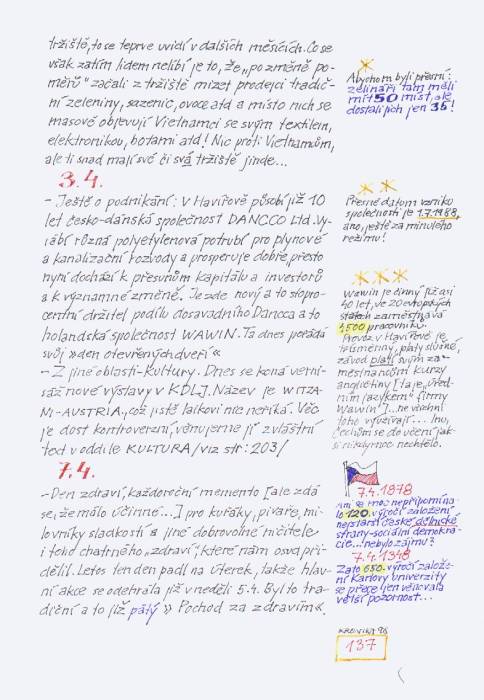 tržiště, to se teprve uvidí v dalších měsících. Co se
však zatím lidem nelíbí je to, že „po změně po-
měrů" začali z tržiště mizet prodejci tradič-
ní zeleniny, sazenic, ovoce atd a místo nich se
masově objevují Vietnamci se svým textilem,
elektronikou, botami atd! Nic proti Vietnamům,
ale ti snad mají své či svá tržiště jinde...
3.4.
- Ještě o podnikání: V Havířově působí již 10
let česko-dánská společnost DANCCO Ltd. Vy-
rábí různá polyetylenová potrubí pro plynové
a kanalizační rozvody a prosperuje dobře, přesto
nyní dochází k přesunům kapitálu a investorů
a k významné změně. Je zde nový a to stopro-
centní držitel podílu dosavadního Dancca a to
holandská společnost WAWIN. Ta dnes pořádá
svůj »den otevřených dveří«
- Z jiné oblasti - kultury. Dnes se koná verni-
sáž nové výstavy v KDLJ. Název je WITZA-
NI-AUSTRIA, což jistě laikovi nic neříká. Věc
je dost kontroverzní, věnujeme jí zvláštní
text v oddíle KULTURA /viz str: 203/
7.4.
- Den zdraví, každoroční memento [ale zdá
se, že málo účinné...] pro kuřáky, pivaře, mi-
lovníky sladkostí a jiné dobrovolné ničitele
i toho chatrného „zdraví", které nám osud při-
dělil. Letos ten den padl na úterek, takže hlav-
ní akce se odehrála již v neděli 5.4. Byl to tra-
diční a to již pátý » Pochod za zdravím«.
Abychom byli přesní:
zelináři tam měli
mít 50 míst, ale
dostali jich jen 36!
Přesné datum vzniku
společnosti je 1.7.1988,
ano, ještě za minulého
režimu!
Wawin je činný již asi
40 let, ve 20 evropských
státech zaměstnává
1500 pracovníků.
Provoz v Havířově je
třísměnný, platy slušné,
závod platí svým za-
městnancům kurzy
angličtiny [ta je „úřed-
ním jazykem" firmy
Wawin"]...ne všichni
toho využívají... Inu,
Čechům se do učení jak-
si nikdy moc nechtělo.
7.4.1878
ani se moc nepřipomína-
lo 120. výročí založení
nejstarší české dělnické
strany - sociální demokra-
cie... nebylo zájmu?
7.4.1348
Zato 650. výročí založe-
ní Karlovy univerzity
se přece jen věnovala
větší pozornost...
KRONIKA 98
137